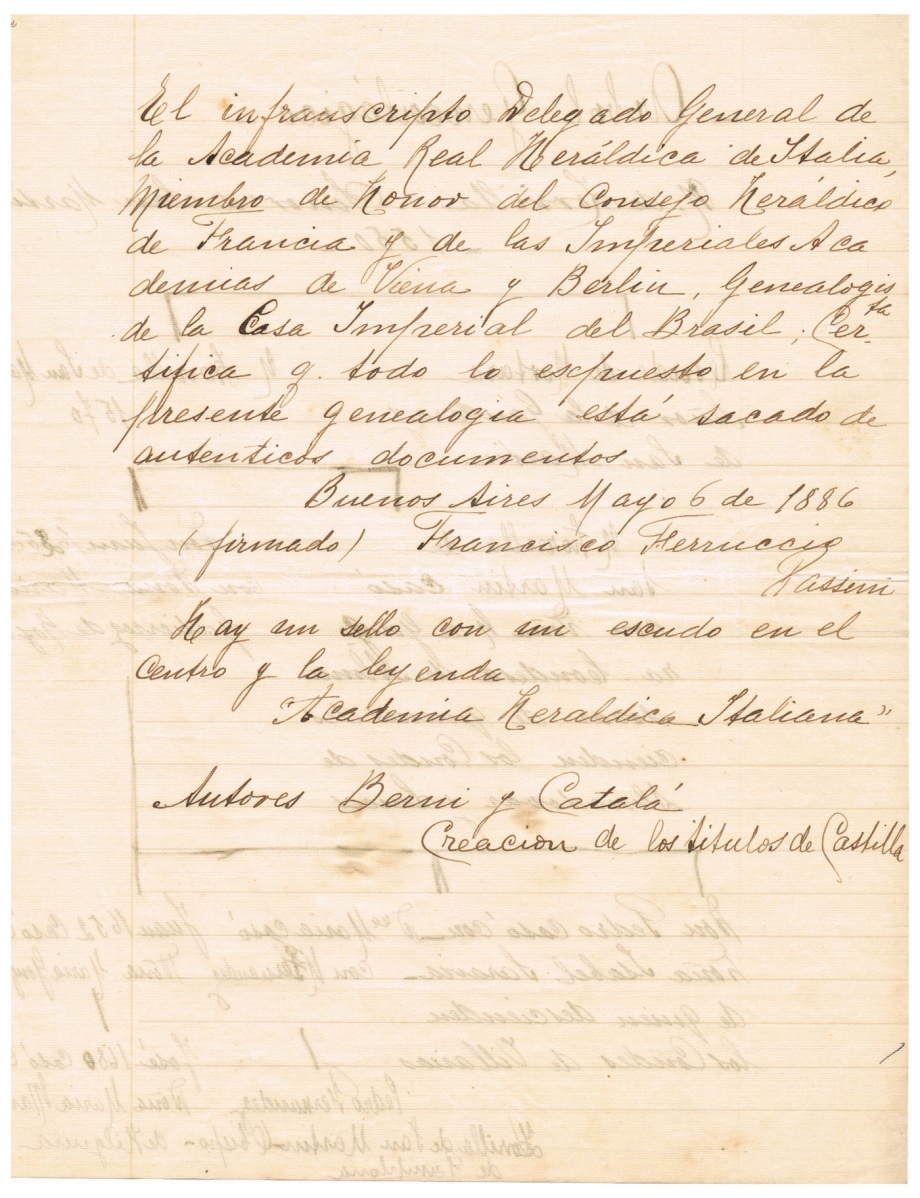 El infranscripto Delegado General de
la Academia Real Heráldica de Italia,
Miembro de Honor del Consejo Heráldico
de Francia y de las Imperiales Aca
demias de Viena y Berlin, Genealogis
ta
de la Casa Imperial del Brasil, Cer-
tifica q. todo lo espuesto en la
presente genealogia está sacado de
autenticos documentos
Buenos Aires Mayo 6 de 1886
(firmado) Francisco Ferruccio
Passini
Hay un sello con un escudo en el
centro y la leyenda
"Academia Heraldica Italiana"
Autores Berni y Catalá
Creacion de los titulos de Castilla